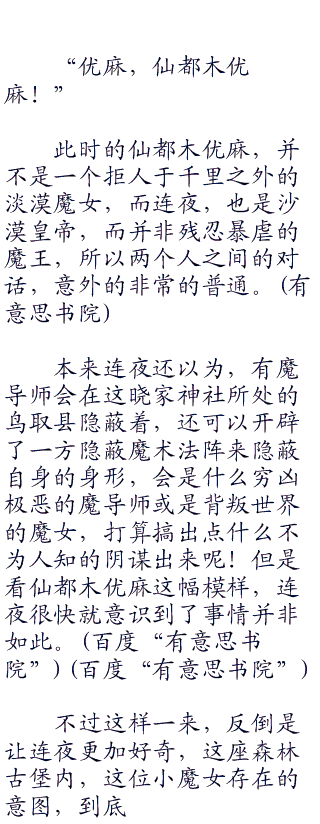 “优麻，仙都木优
麻！”
此时的仙都木优麻，并
不是一个拒人于千里之外的
淡漠魔女，而连夜，也是沙
漠皇帝，而并非残忍暴虐的
魔王，所以两个人之间的对
话，意外的非常的普通。(有
意思书院)
本来连夜还以为，有魔
导师会在这晓家神社所处的
鸟取县隐蔽着，还可以开辟
了一方隐蔽魔术法阵来隐蔽
自身的身形，会是什么穷凶
极恶的魔导师或是背叛世界
的魔女，打算搞出点什么不
为人知的阴谋出来呢！但是
看仙都木优麻这幅模样，连
夜很快就意识到了事情并非
如此。(百度“有意思书
院”)(百度“有意思书院”)
不过这样一来，反倒是
让连夜更加好奇，这座森林
古堡内，这位小魔女存在的
意图，到底